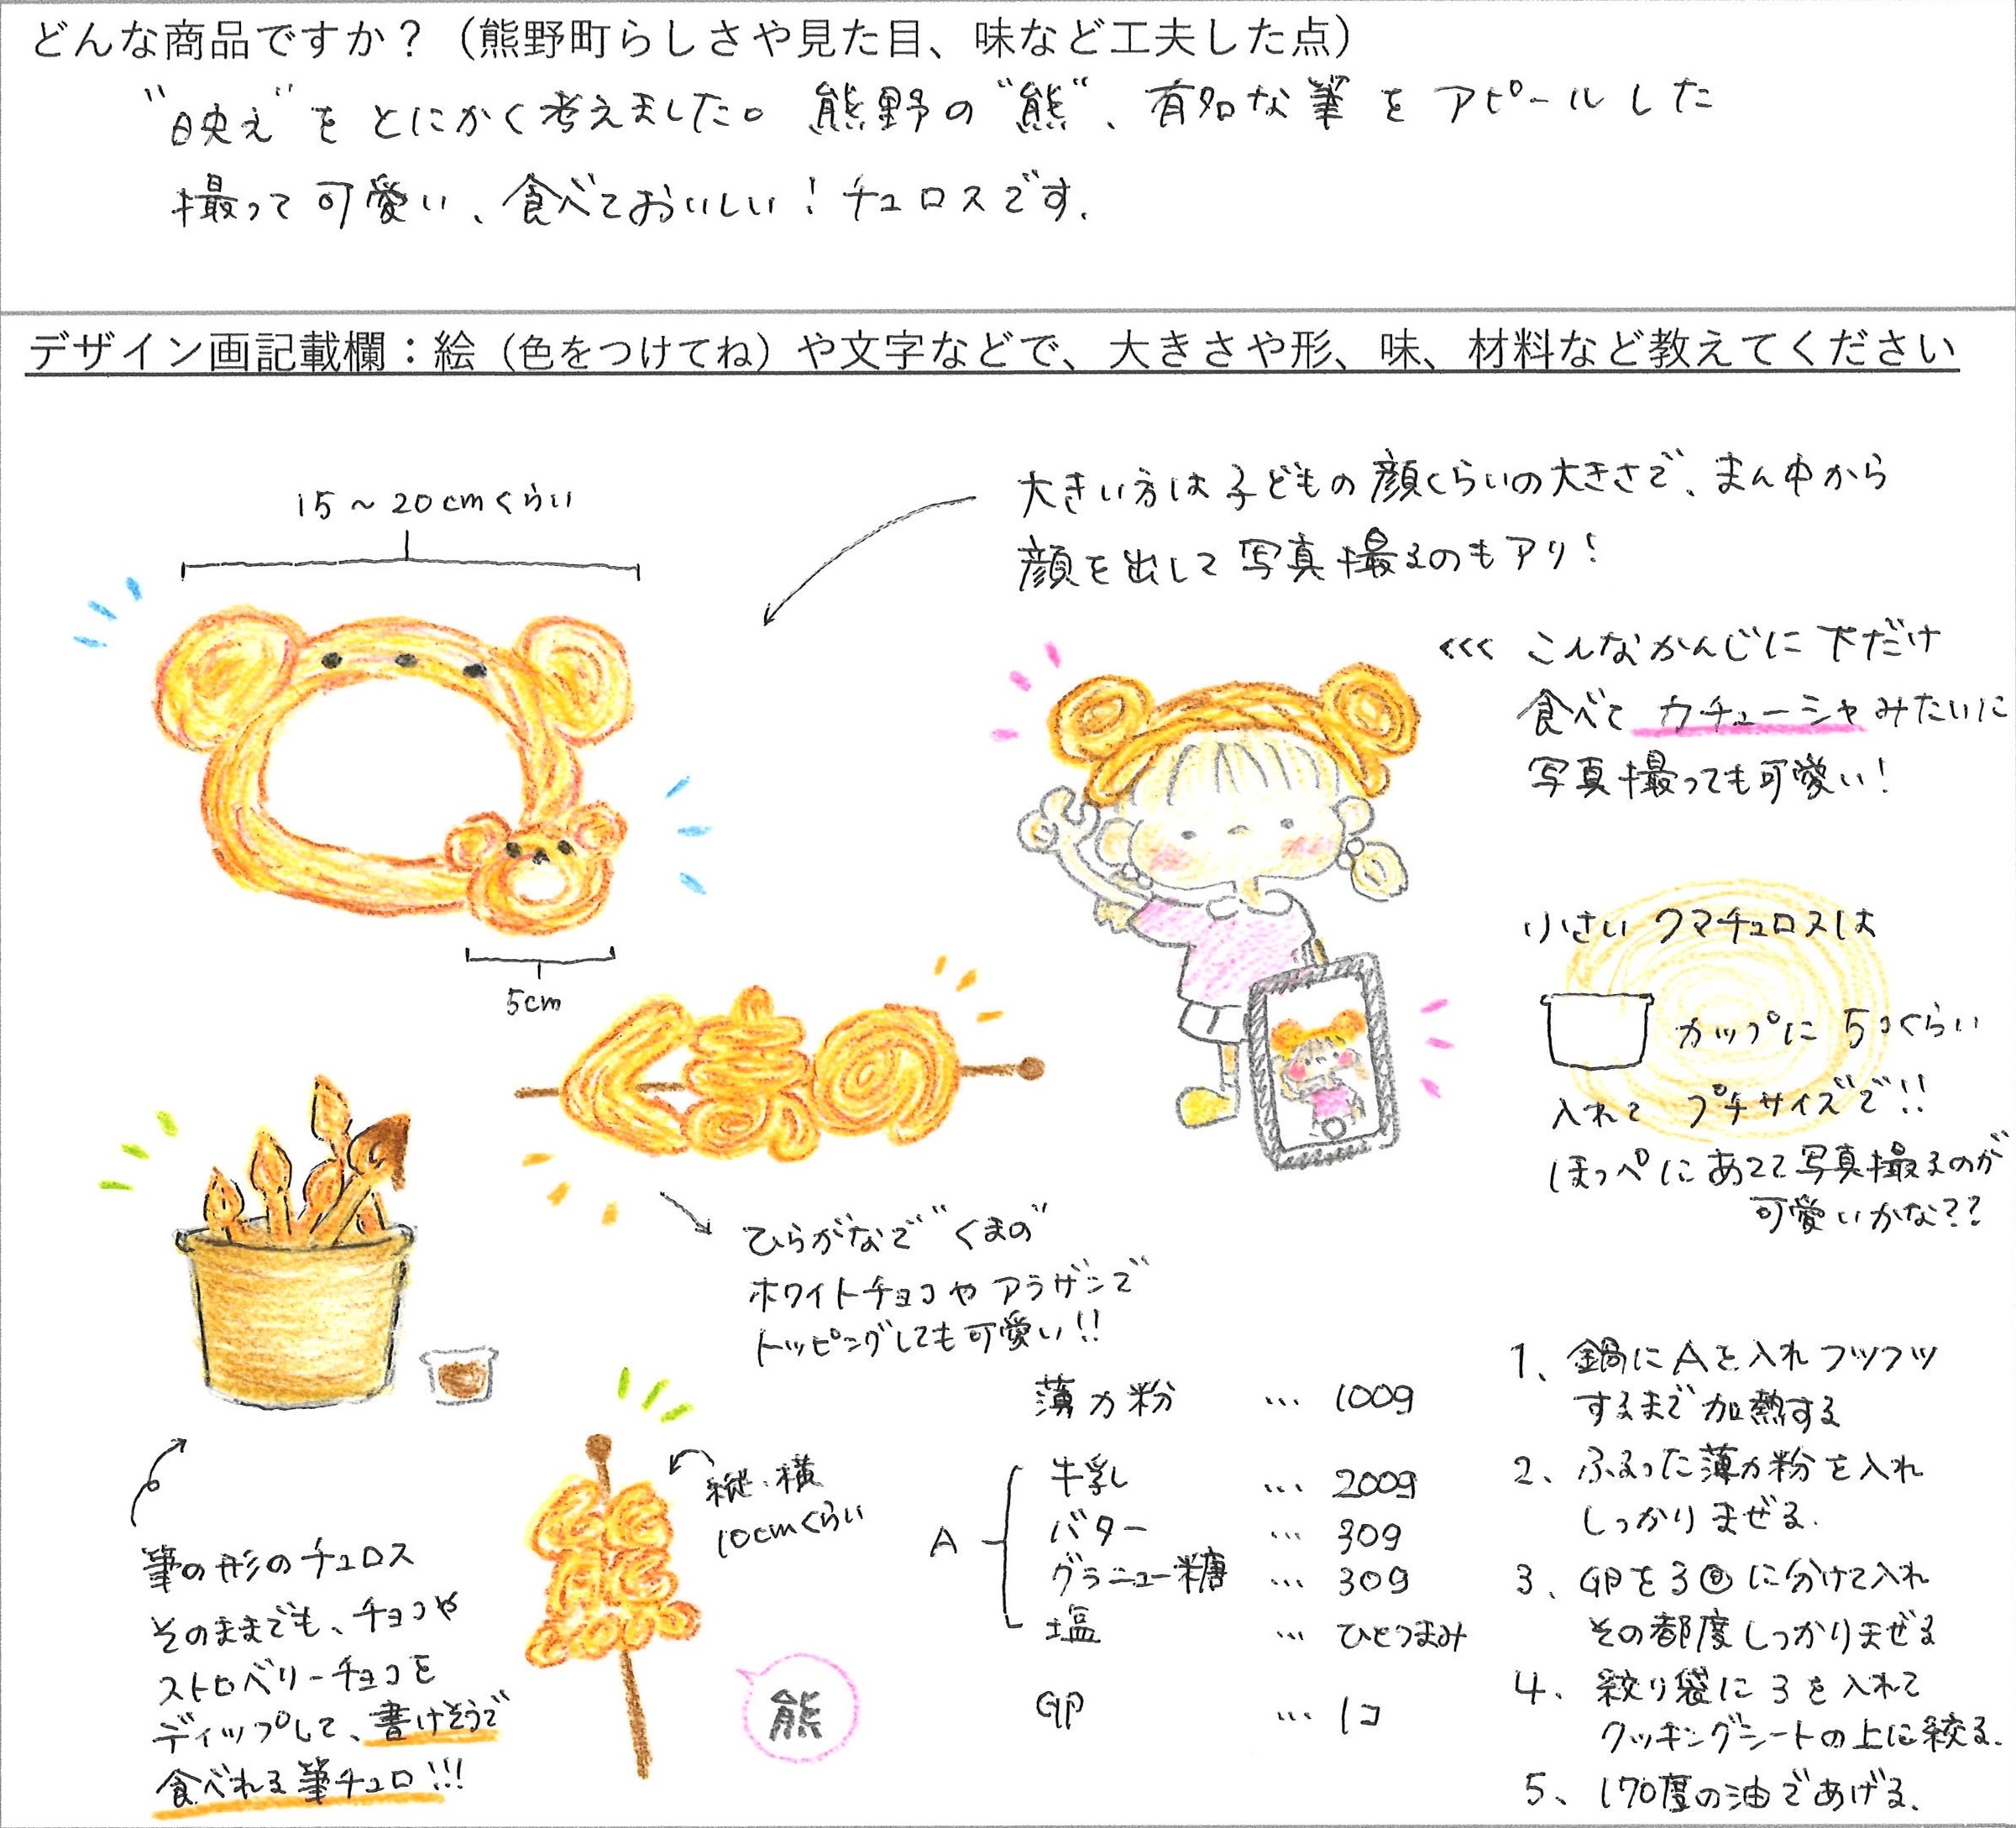 どんな商品ですか？（熊野町らしさや見た目、味など工夫した点）
"映え"をとにかく考えました。熊野の"熊"、有名な筆をアピールした
撮って可愛い、食べておいしい！チュロスです。
デザイン画記載欄：絵（色をつけてね）や文字などで、大きさや形、味、材料など教えてください
15～20cmくらい
大きい方は子どもの顔くらいの大きさで、まん中から
顔を出して写真撮るのもアリ！
<<< こんなかんじに下だけ
食べてカチューシャみたいに
写真撮っても可愛い！
5cm
小さいクマチュロスは
カップに5コくらい
入れてプチサイズで!!
ほっぺにあてて写真撮るのが
可愛いかな??
くまの
ひらがなで"くまの"
ホワイトチョコやアラザンで
トッピングしても可愛い!!
筆の形のチュロス
そのままでも、チョコや
ストロベリーチョコを
ディップして、書けそうで
食べれる筆チュロ!!!
熊
縦・横
10cmくらい
熊
薄力粉 … 100g
A
牛乳 … 200g
バター … 30g
グラニュー糖 … 30g
塩 … ひとつまみ
卵 … 1コ
1、鍋にAを入れフツフツ
するまで加熱する
2、ふるった薄力粉を入れ
しっかりまぜる.
3、卵を3回に分けて入れ
その都度しっかりまぜる
4、絞り袋に3を入れて
クッキングシートの上に絞る.
5、170度の油であげる.